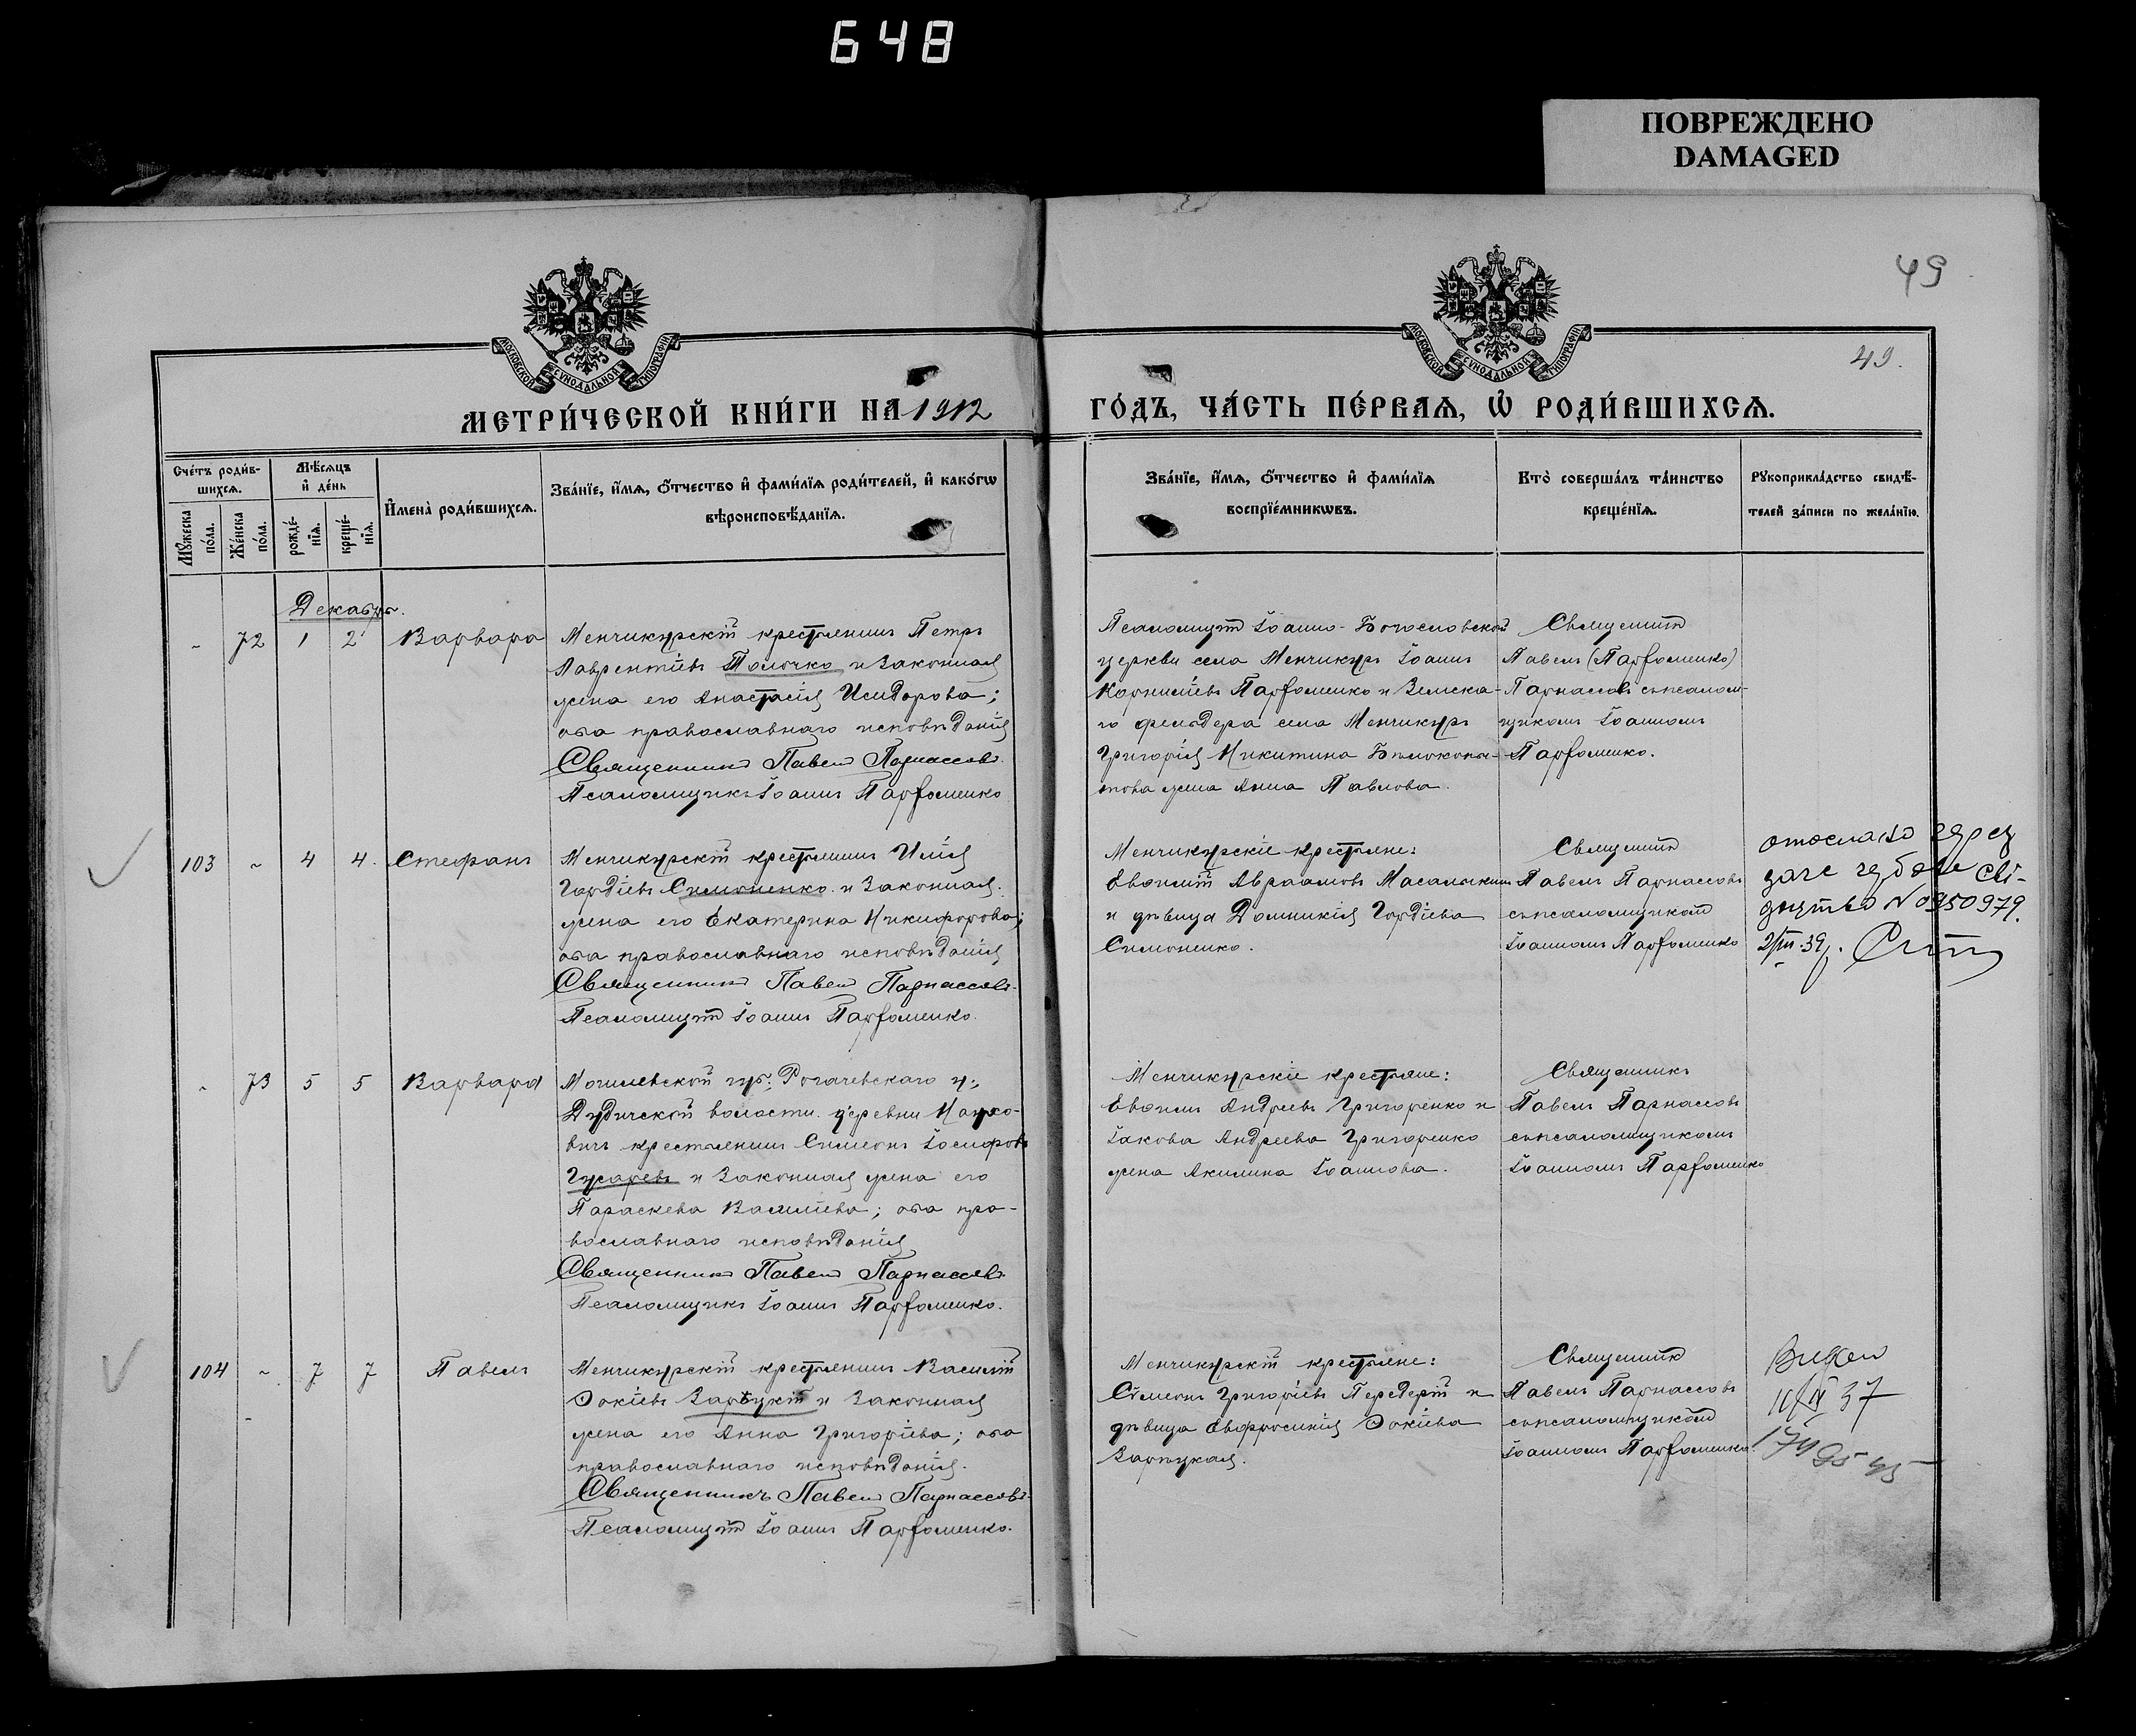 648
ПОВРЕЖДЕНО
DAMAGED
49
49.
МОСКОВСКОЙ СѴНОДАЛЬНОЙ ТИПОГРАФІИ
МОСКОВСКОЙ СѴНОДАЛЬНОЙ ТИПОГРАФІИ
МЕТРИ́ЧЕСКОЙ КНИ́ГИ НА 1912
ГО́ДЪ, ЧА́СТЬ ПЕ́РВАѦ, Ѡ҆ РОДИ́ВШИХСѦ.
Сче́тъ роди́в-
шихсѧ.
Мѣ́сѧцъ
и҆ де́нь
И҆мена̀ роди́вшихсѧ.
Зва́нїе, и҆́мѧ, ѻ҆́тчество и҆ фами́лїѧ роди́телей, и҆ како́гѡ
вѣроисповѣ́данїѧ.
Мꙋ́жеска
по́ла.
Же́нска
по́ла.
рожде́-
нїѧ.
креще́-
нїѧ.
Зва́нїе, и҆́мѧ, ѻ҆́тчество и҆ фами́лїѧ
воспрїе́мникѡвъ.
Кто̀ соверша́лъ та́инство
креще́нїѧ.
Рꙋкоприкла́дство свидѣ́-
телей за́писи по жела́нїю.
Декабрь.
- 72 1 2 Варвара
Менчикурскій крестьянинъ Петръ
Лаврентіевъ Толочко и законная
жена его Анастасія Исидорова;
оба православнаго исповѣданія
Священникъ Павелъ Парнассовъ.
Псаломщикъ Іоаннъ Парфоменко
Псаломщикъ Іоанно-Богословской
церкви села Менчикуръ Іоаннъ
Корниліевъ Парфоменко и Земска-
го фельдшера села Менчикуръ
Григорія Никитина Бѣлоконы-
това жена Анна Павлова.
Священникъ
Павелъ (Парфоменко)
Парнассовъ съ псалом-
щикомъ Іоанномъ
Парфоменко.
103 - 4 4. Стефанъ
Менчикурскій крестьянинъ Илія
Гордіевъ Симоненко и законная
жена его Екатерина Никифорова;
оба православнаго исповѣданія
Священникъ Павелъ Парнассовъ.
Псаломщикъ Іоаннъ Парфоменко.
Менчикурскіе крестьяне:
Евѳимій Авраамовъ Масалыкинъ
и дѣвица Домникія Гордіева
Симоненко.
Священникъ
Павелъ Парнассовъ
съ псаломщикомъ
Іоанномъ Парфоменко
№ 0950979.
2/III.39г.
- 73 5 5 Варвара
Могилевской губ., Рогачевскаго у.,
Дудичской волости. деревни
вичъ крестьянинъ Симеонъ Іосифовъ
Гусаревъ и законная жена его
Параскева Василіева; оба пра-
вославнаго исповѣданія
Священникъ Павелъ Парнассовъ.
Псаломщикъ Іоаннъ Парфоменко.
Менчикурскіе крестьяне:
Евѳимъ Андреевъ Григоренко и
Іакова Андреева Григоренко
жена Акилина Іоаннова.
Священникъ
Павелъ Парнассовъ
съ псаломщикомъ
Іоанномъ Парфоменко
104 - 7 7 Павелъ
Менчикурскій крестьянинъ Василій
Ѳокіевъ и законная
жена его Анна Григоріева; оба
православнаго исповѣданія.
Священникъ Павелъ Парнассовъ.
Псаломщикъ Іоаннъ Парфоменко.
Менчикурскій крестьяне:
Симеонъ Григоріевъ Передерій и
дѣвица Евфросинія Ѳокіева
Зарпуцкая.
Священникъ
Павелъ Парнассовъ
съ псаломщикомъ
Іоанномъ Парфоменко.
37